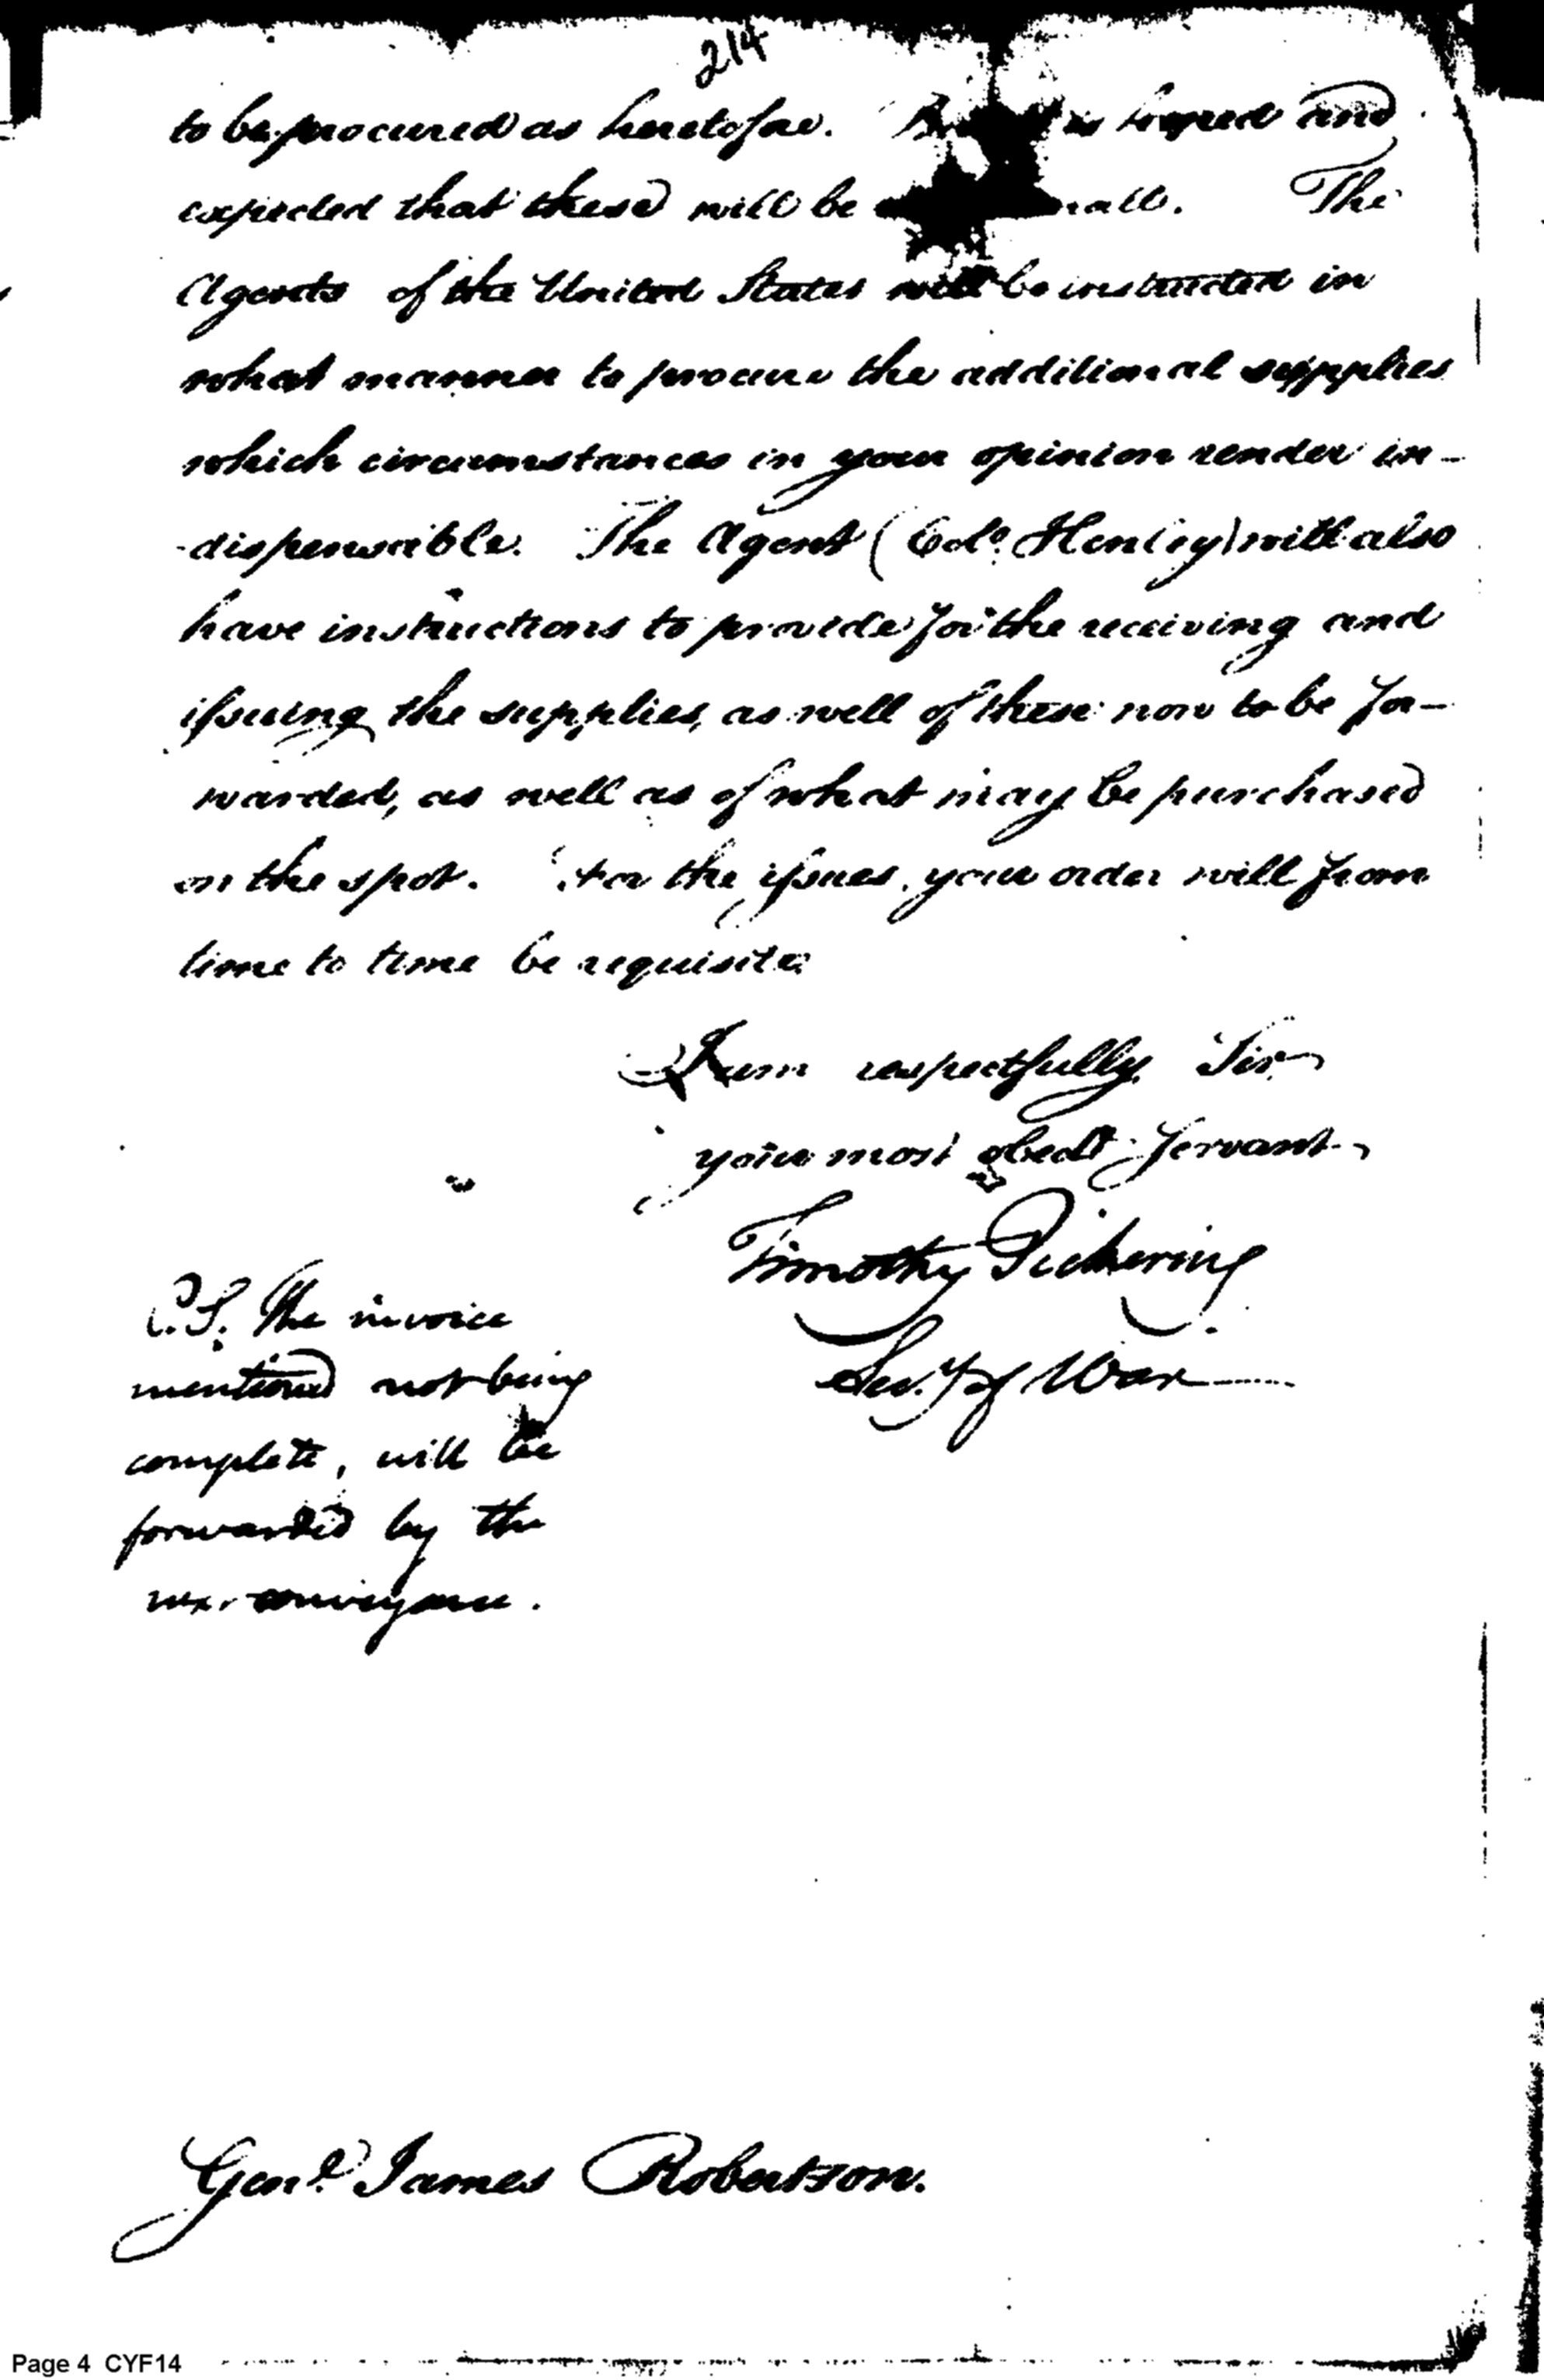 214
to be procured as heretofore. is hoped and
expected that these will be The
Agents of the United States will be instructed in
what manner to procure the additional supplies
which circumstances in your opinion render in-
-dispensible. The Agent (Colo. Henley) will also
have instructions to provide for the receiving and
issuing the supplies, as well of these now to be for-
warded, as well as of what may be purchased
on the spot. For the issues, your order will from
time to time be requisite
I am respectfully Sir
your most obedt. Servant
Timothy Pickering
Secy. of War
P.S. The invoice
mentioned not being
complete, will be
forwarded by the
next conveyance.
Genl. James Robertson.
Page 4 CYF14